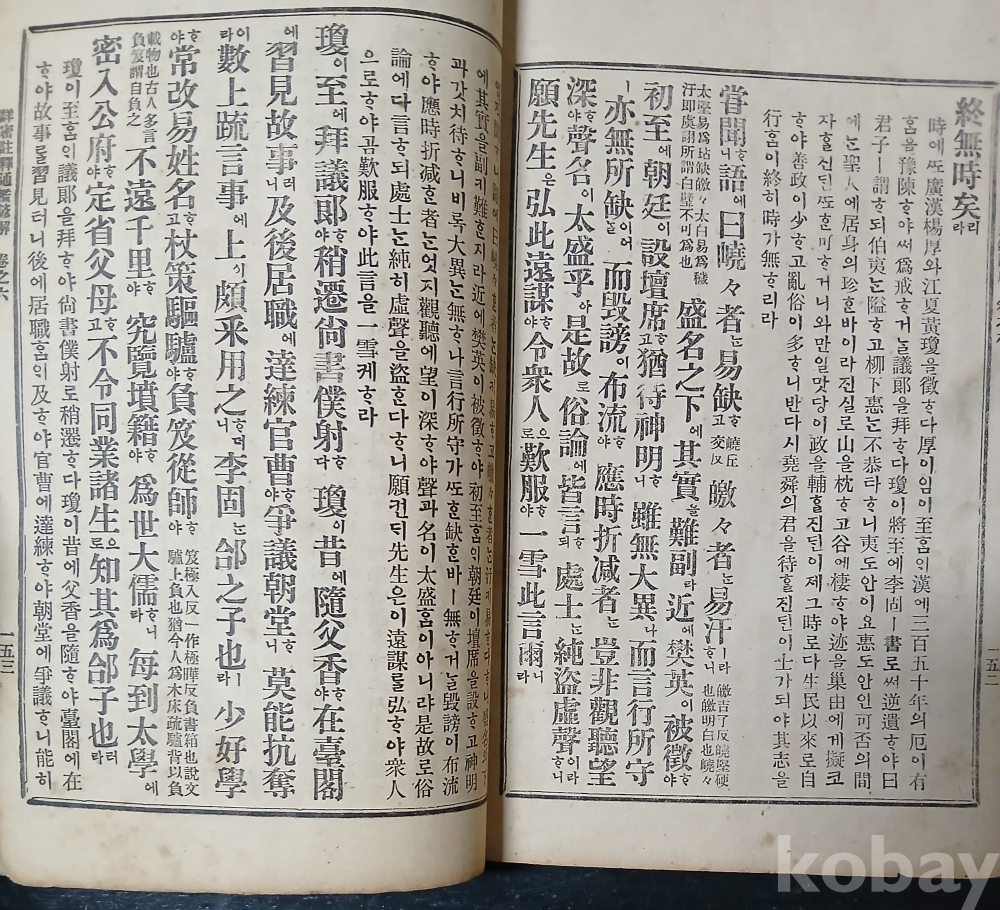 終無時矣리라
時에ᄯᅩ廣漢楊厚와江夏黃瓊을徵ᄒᆞ다厚이임이至ᄒᆞᆷ의漢에三百五十年의厄이有
ᄒᆞᆷ을豫陳ᄒᆞ야써爲戒ᄒᆞ거ᄂᆞᆯ議郞을拜ᄒᆞ다瓊이將至에李固ㅣ書로써逆遺ᄒᆞ야曰
君子ㅣ謂ᄒᆞ되伯夷ᄂᆞᆫ隘ᄒᆞ고柳下惠ᄂᆞᆫ不恭타ᄒᆞ니夷도안이요惠도안인可否의間
에ᄂᆞᆫ聖人에居身의珍ᄒᆞᆫ바이라진실로山을枕ᄒᆞ고谷에棲ᄒᆞ야迹을巢由에게擬코
자ᄒᆞᆯ진딘ᄯᅩᄒᆞᆫ可ᄒᆞ거니와만일맛당이政을輔ᄒᆞᆯ진딘이제그時로다生民以來로自
ᄒᆞ야善政이少ᄒᆞ고亂俗이多ᄒᆞ니반다시堯舜의君을待ᄒᆞᆯ진딘이士가되야其志을
行ᄒᆞᆷ이終히時가無ᄒᆞ리라
甞聞ᄒᆞ니語에曰嶢々者ᄂᆞᆫ易缺ᄒᆞ고 嶢丘交反 皦々者ᄂᆞᆫ易汙ㅣ라ᄒᆞ니 皦吉了反嶢堅硬也皦明白也嶢々
太堅易爲玷缺皦々太白易爲穢汙即虞詡所謂白璧不可爲也 盛名之下에其實을難副라近에樊英이被徵ᄒᆞ야
初至에朝廷이設壇席ᄒᆞ고猶待神明ᄒᆞ니雖無大異나而言行所守
ㅣ亦無所缺이어ᄂᆞᆯ而毁謗이布流ᄒᆞ야應時折减者ᄂᆞᆫ豈非觀聽望
深ᄒᆞ야聲名이太盛乎아是故로俗論에皆言ᄒᆞ되處士ᄂᆞᆫ純盜虛聲이라ᄒᆞ니
願先生은弘此遠謀ᄒᆞ야令衆人으로歎服ᄒᆞ야一雪此言爾니라
에其實을副키難ᄒᆞᆫ지라近에樊英이被徵ᄒᆞ야初至ᄒᆞᆷ의朝廷이壇席을設ᄒᆞ고神明
과갓치待ᄒᆞ니비록大異ᄂᆞᆫ無ᄒᆞ나言行所守가ᄯᅩᄒᆞᆫ缺ᄒᆞᆫ바ㅣ無ᄒᆞ거ᄂᆞᆯ毁謗이布流
ᄒᆞ야應時折减ᄒᆞᆫ者ᄂᆞᆫ엇지觀聽에望이深ᄒᆞ야聲과名이太盛ᄒᆞᆷ이아니랴是故로俗
論에다言ᄒᆞ되處士ᄂᆞᆫ純히虛聲을盜ᄒᆞᆫ다ᄒᆞ니願컨ᄃᆡ先生은이遠謀를弘ᄒᆞ야衆人
으로ᄒᆞ야곰歎服ᄒᆞ야此言을一雪케ᄒᆞ라
瓊이至에拜議郞ᄒᆞ야稍遷尙書僕射ᄒᆞ다瓊이昔에隨父香ᄒᆞ야在臺閣
에習見故事러니及後居職에達練官曹ᄒᆞ야爭議朝堂ᄒᆞ니莫能抗奪
이라數上疏言事에上이頗采用之ᄒᆞ더라李固ᄂᆞᆫ郃之子也ㅣ라少好學
ᄒᆞ야常改易姓名ᄒᆞ고杖策驅驢ᄒᆞ야負笈從師ᄒᆞ야 笈極入反一作極曄反負書箱也說文驢上負也猶今人爲木床疏驢背以負
載物也古人多言負笈謂自負之 不遠千里ᄒᆞ야究覽墳籍ᄒᆞ야爲世大儒ᄒᆞ니라每到太學에
密入公府ᄒᆞ야定省父母ᄒᆞ고不令同業諸生으로知其爲郃子也ㅣ러라
瓊이至ᄒᆞᆷ의議郞을拜ᄒᆞ야尙書僕射로稍遷ᄒᆞ다瓊이昔에父香을隨ᄒᆞ야臺閣에在
ᄒᆞ야故事를習見터니後에居職ᄒᆞᆷ의及ᄒᆞ야官曹에達練ᄒᆞ야朝堂에爭議ᄒᆞ니能히
詳密註釋通鑑諺解 卷之六
一五三
一五二
kobay